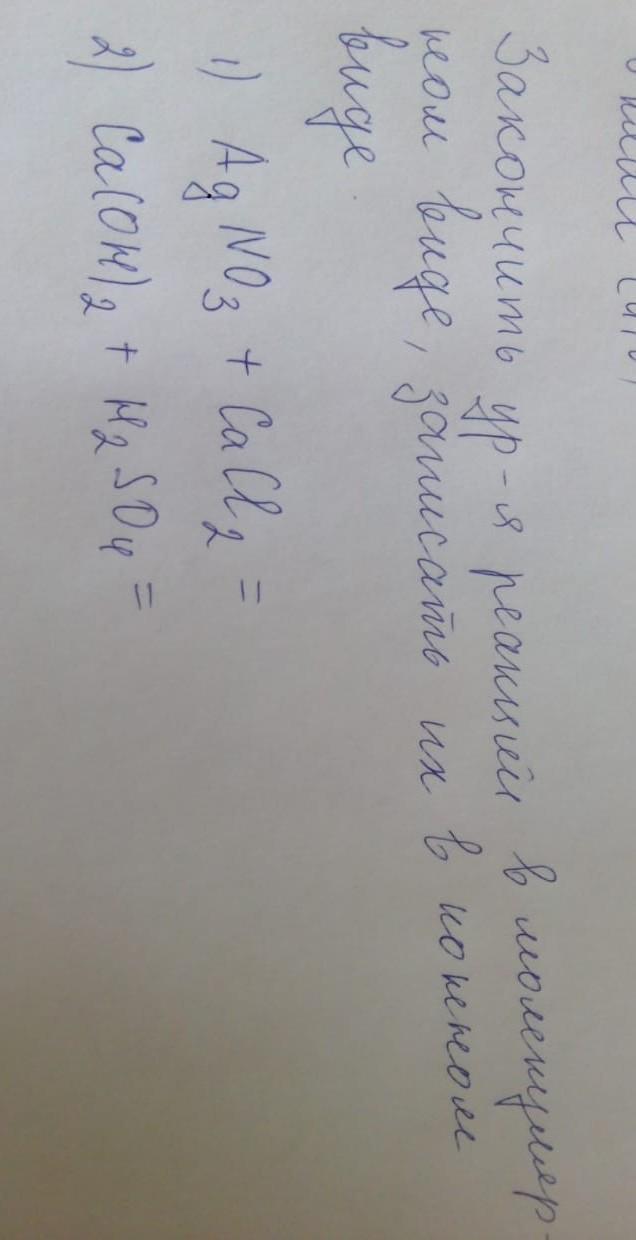 Закончить ур-я реакций в молекуляр-
ном виде, записать их в ионном
виде.
1) AgNO3 + CaCl2 =
2) Ca(OH)2 + H2SO4 =